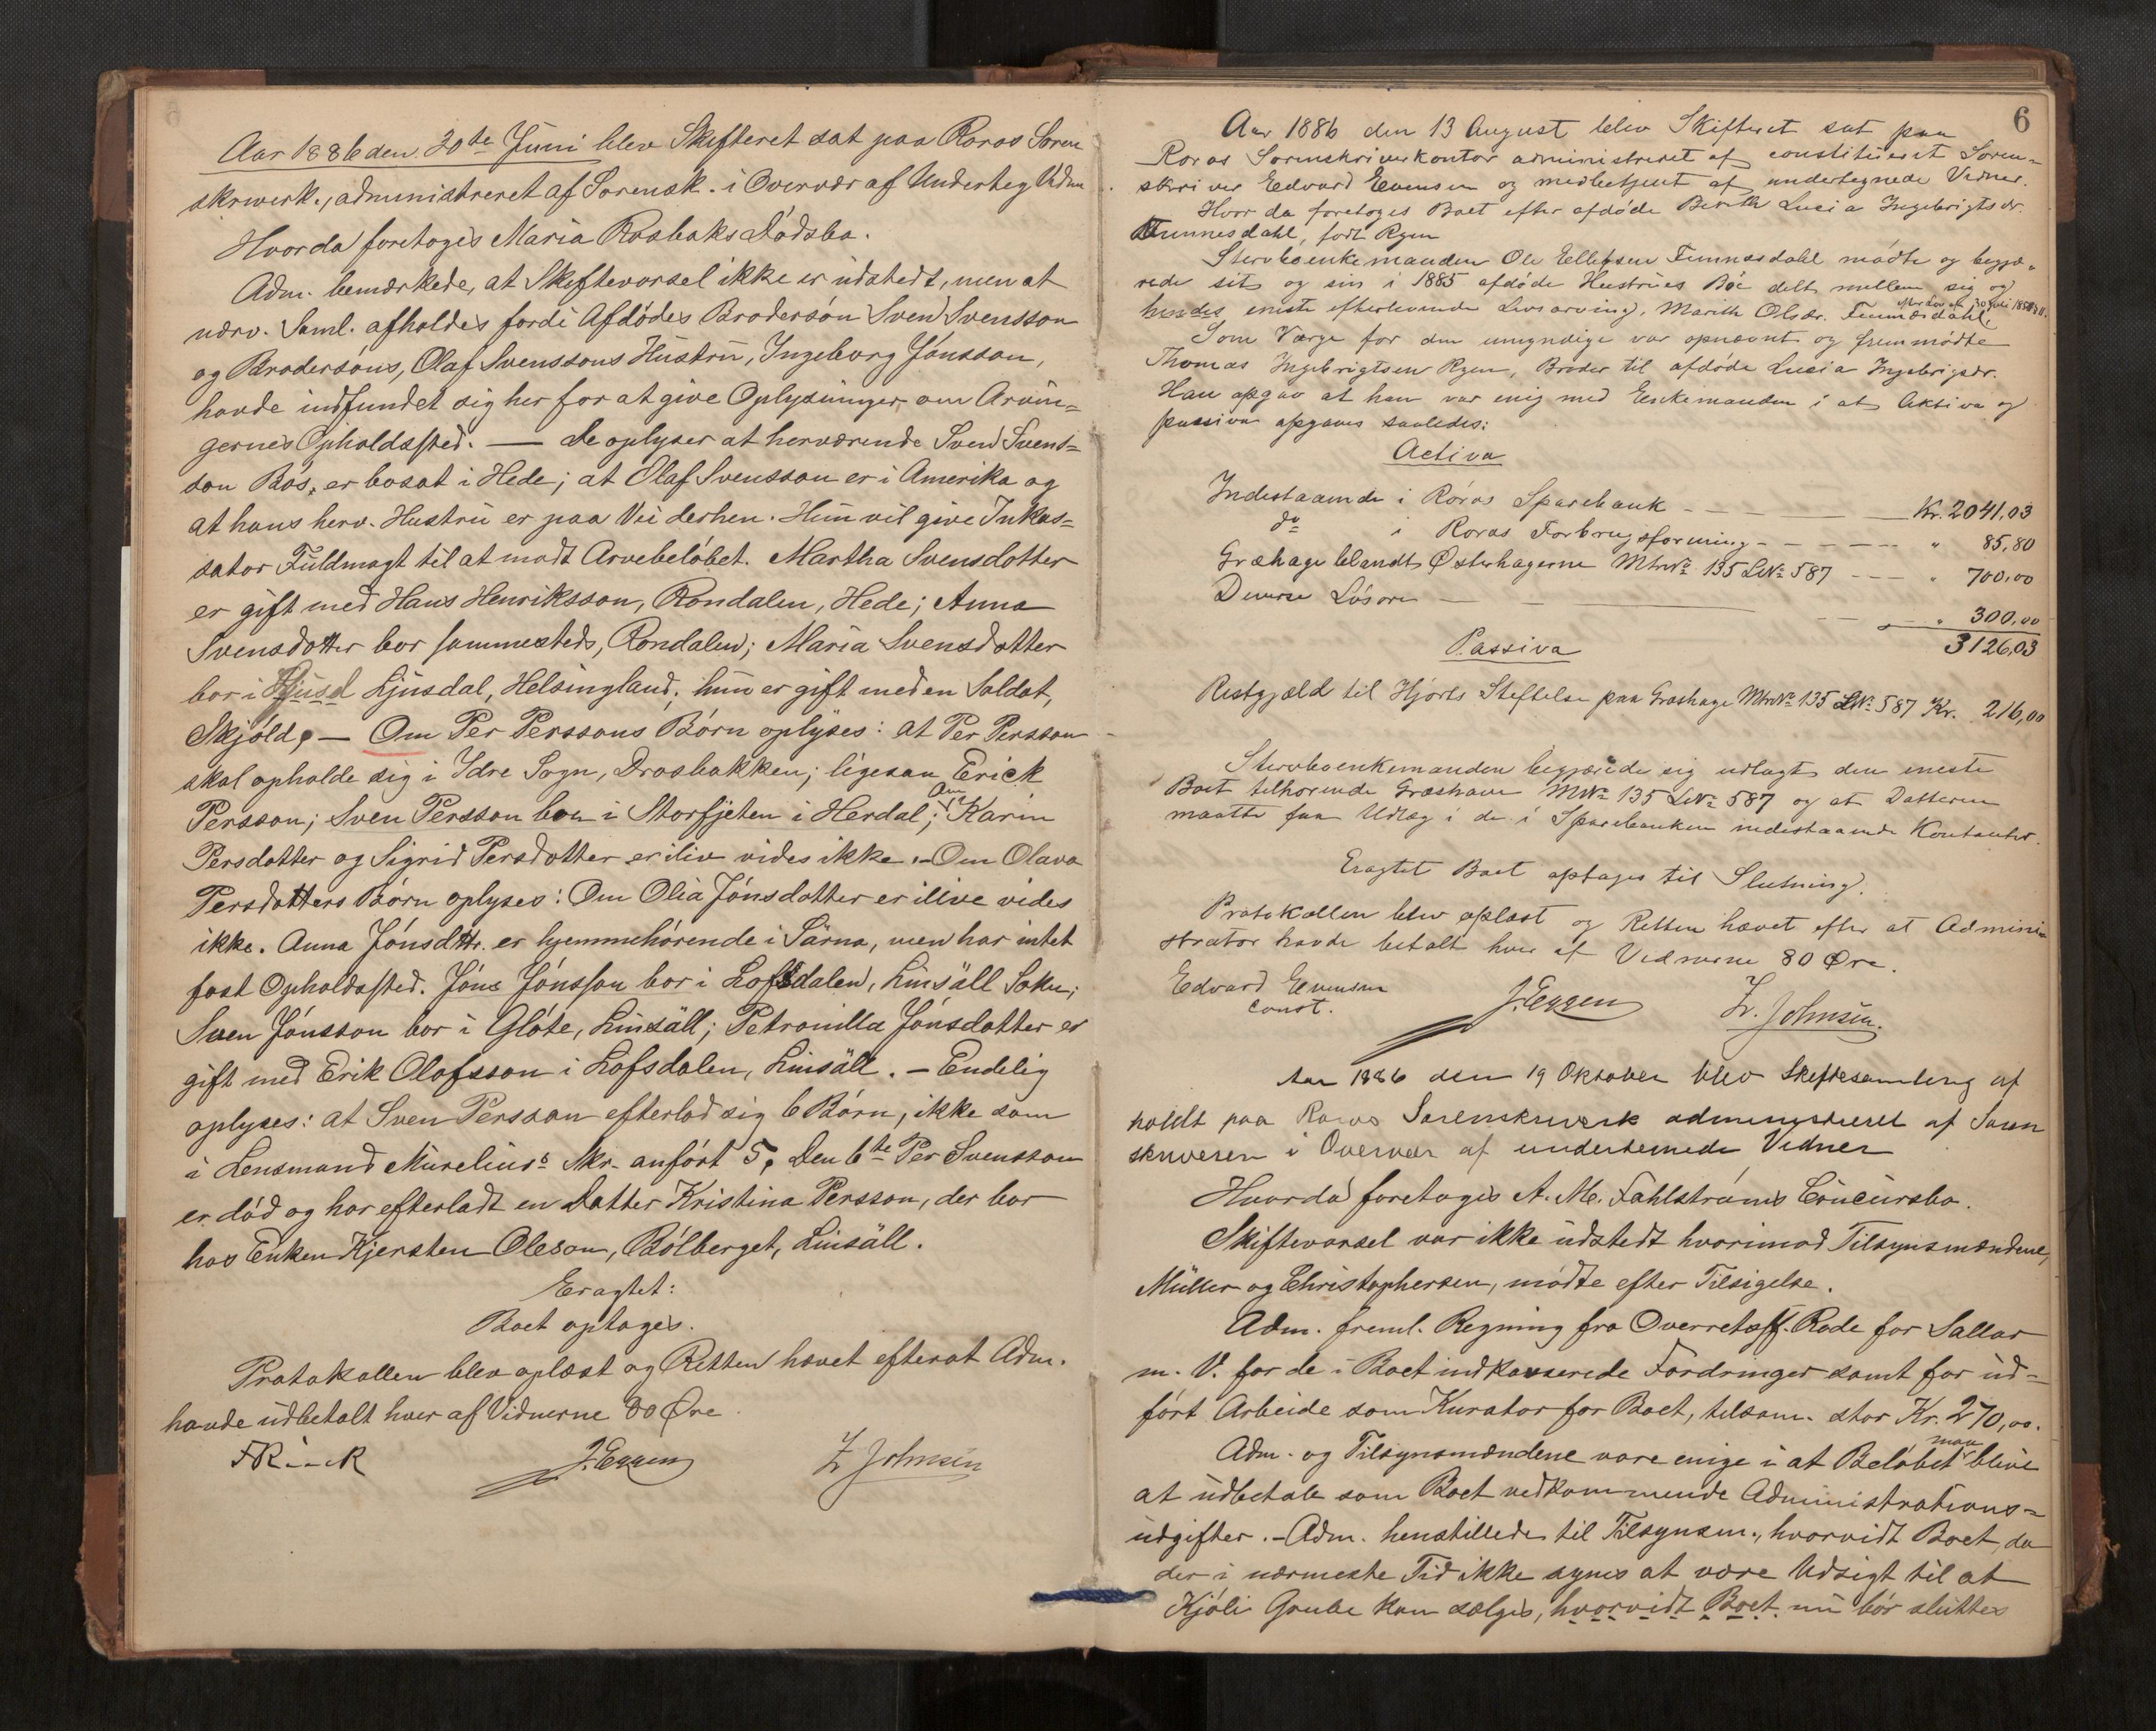 Aar 1886 den 20de Juni blev Skifteret sat paa Røros Soren
skriverk., administreret af Sorensk. i Overvær af Underteg Vidn
Hvorda foretoges Maria Rosbaks Dødsbo.
Adm. bemærkede, at Skiftevarsel ikke er udstedt, men at
nærv. Saml. afholdes fordi Afdødes Brodersøn Sven Svensson
og Brodersøns, Olaf Svenssons Hustru, Ingeborg Jónsson,
havde indfundet sig her for at give Oplysninger om Arvin=
gernes Opholdssted. — De oplyser at herværende Sven Svens=
son Bös, er bosat i Hede; at Olaf Svensson er i Amerika og
at hans herv. Hustru er paa Vei derhen. Hun vil give Inkas=
sator Fuldmagt til at modt Arvebeløbet. Martha Svensdotter
er gift med Hans Henriksson, Rondalen, Hede; Anna
Svensdotter bor sammesteds, Rondalen; Maria Svensdotter
bor i Ljusdal, Helsingland; hun er gift med en Soldat,
Skjöld. — Om Per Perssons Børn oplyses: at Per Persson
skal opholde sig i Idre Sogn, Drosbakken; ligesaa Erick
Persson; Sven Persson bor i Storfjeten i Herdal; Om Karin
Persdotter og Sigrid Persdotter er iliv vides ikke. – Om Olava
Persdotters Børn oplyses: Om Olia Jónsdotter er ilive vides
ikke. Anna Jónsdttr. er hjemmehørende i Särna, men har intet
fast Opholdssted. Jóns Jónsson bor i Lofsdalen, Linsäll Sokn;
Sven Jónsson bor i Glöte, Linsäll; Petronilla Jónsdotter er
gift med Erik Olofsson i Lofsdalen, Linsäll. – Endelig
oplyses: at Sven Persson efterlod sig 6 Børn, ikke som
i Lensmand Murelius's Skr. anført 5. Den 6te Per Svensson
er død og har efterladt en Datter Kristina Persson, der bor
hos Enken Kjersten Oleson, Bölberget, Linsäll.
Eragtet:
Boet optages.
Protokollen blev oplæst og Retten hævet efterat Adm.
havde udbetalt hver af Vidnerne 80 Øre.
J. Eggen Z Johnsen
6
Aar 1886 den 13 August blev Skifteret sat paa
Røros Sorenskriverkontor administreret af constitueret Soren=
skriver Edvard Evensen og medbetjent af undertegnede Vidner.
Hvor da foretoges Boet efter afdøde Berith Lucia Ingebrigtsdr.
Funnesdahl, født Ryen
Stervboenkemanden Ole Ellefsen Femnesdahl mødte og begjæ=
rede sit og sin i 1885 afdøde Hustrues Bo delt mellem sig og
hendes eneste efterlevende Livsarving, Marith Olsdr. Femnesdahl,
Som Værge for den umyndige var opnævnt og fremmødte
Thomas Ingebrigtsen Ryen, Broder til afdøde Lucia Ingebrigtsdr.
Han opgav at han var enig med Enkemanden i at Aktiva og
passiva opgaves saaledes:
Activa
Indestaaende i Røros Sparebank — Kr. 2041,03
do i Røros Forbrugsforening — " 85,80
Græshage blandt Østerhagerne MtrNo 135 LNo 587 — " 700,00
Diverse Løsøre — " 300,00
3126,03
Passiva
Restgjæld til Hjorts Stiftelse paa Græshage MtrNo 135 LNo 587 Kr. 216,00
Stervboenkemanden begjærede sig udlagt den eneste
Boet tilhørende Græshave MNo 135 LNo 587 og at Datteren
maatte faa Udlæg i de i Sparebanken indestaaende Kontanter.
Eragtet Boet optages til Slutning.
Protokollen blev oplæst og Retten hævet efter at Admini=
strator havde betalt hver af Vidnerne 80 Øre.
Edvard Evensen
const.
J. Eggen Z. Johnsen.
Aar 1886 den 19 Oktober blev Skiftesamling af
holdt paa Røros Sorenskriverk administreret af Soren
skriveren i Overvær af undertegnede Vidner
Hvorda foretoges A. M. Fahlstrøms Concursbo.
Skiftevarsel var ikke udstedt hvorimod Tilsynsmændene,
Müller og Christophersen, mødte efter Tilsigelse.
Adm. freml. Regning fra Overretssf. Rode for Sallar
m. V. for de i Boet indkasserede Fordringer samt for ud=
ført Arbeide som Kurator for Boet, tilsam. stor Kr. 270,00.
Adm. og Tilsynsmændene vare enige i at Beløbet maa blive
at udbetale som Boet vedkommende Administrations=
udgifter. – Adm. henstillede til Tilsynsm., hvorvidt Boet, da
der i nærmeste Tid ikke synes at være Udsigt til at
Kjøli Grube kan sælges, hvorvidt Boet nu bør sluttes